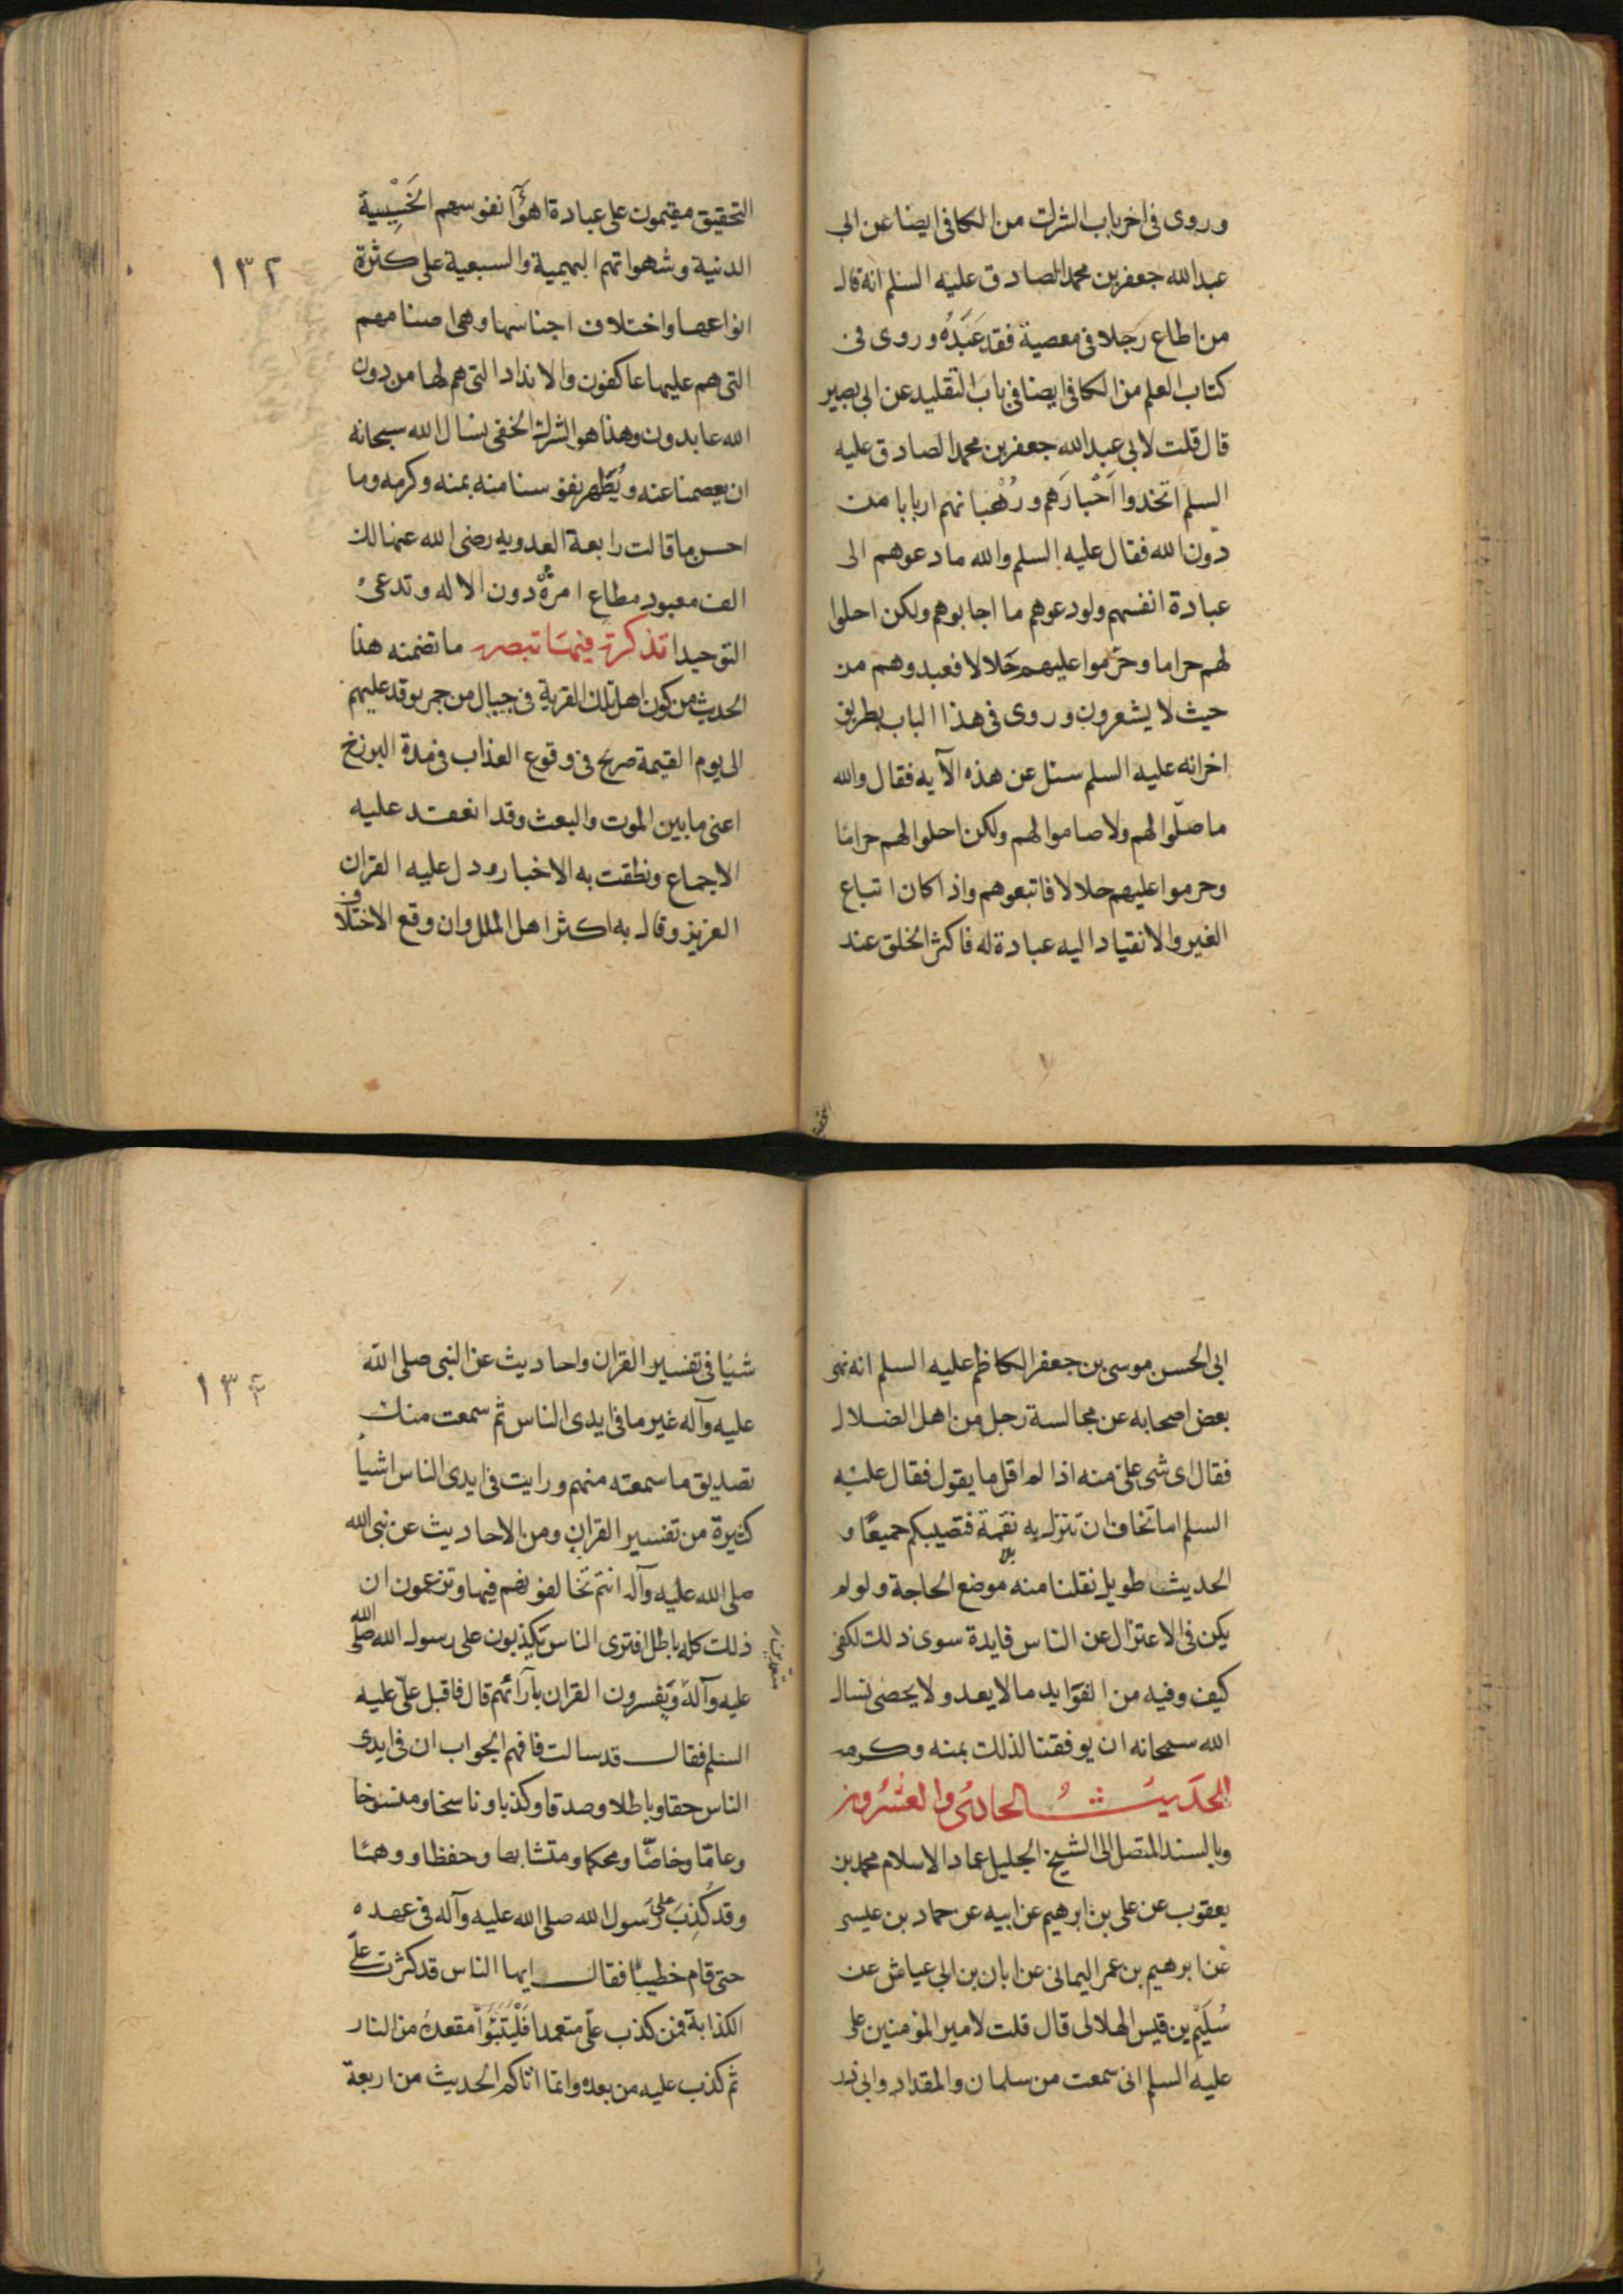 وروى فى اخر باب الشرك من الكافى ايضا عن ابى
عبد الله جعفر بن محمد الصادق عليه السلم انه قال
من اطاع رَجلا فى معصية فقد عَبَدُه وروى فى
كتاب العلم من الكافى ايضا فى باب التقليد عن ابى بصير
قال قلت لابى عبد الله جعفر بن محمد الصادق عليه
السلم اتخذوا اَحْبارَهم ورُهْبانهم اربابا من
دون الله فقال عليه السلم والله ما دعوهم الى
عبادة انفسهم ولو دعوهم ما اجابوهم ولكن احلوا
لهم حراما وحرّموا عليهم حَلالا فعبدوهم من
حيث لا يشعرون وروى فى هذا الباب بطريق
اخر انه عليه السلم سئل عن هذه الآيه فقال والله
ما صلّوا لهم ولا صاموا لهم ولكن احلوا لهم حرامًا
وحرموا عليهم حلالا فاتبعوهم واذا كان اتباع
الغير والانقياد اليه عبادة له فاكثر الخلق عند
التحقيق مقيمون على عبادة اهوآء نفوسهم الخَسِيْسية
الدنية وشهواتهم البهيمية والسبعية على كثرة
١٣٢
انواعها واختلاف اجناسها وهى اصنامهم
التى هم عليها عاكفون والانداد التى هم لها من دون
الله عابدون وهذا هو الشرك الخفى نسال الله سبحانه
ان يعصمنا عنه ويُطَهر نفوسنا منه بمنه وكرمه وما
احسن ما قالت رابعة العدويه رضى الله عنها لك
الف معبود مطاع امرهُ دون الاله وتدعى
التوحيدا تذكرة فيها تبصرة ما تضمنه هذا
الحديث من كون اهل تلك القرية فى جبال من جمر يوقد عليهم
الى يوم القيمة صريح فى وقوع العذاب فى مدة البرزخ
اعنى ما بين الموت والبعث وقد انعقد عليه
الاجماع ونطقت به الاخبار ودل عليه القران
العزيز وقال به اكثر اهل الملل وان وقع الاختلاف
ابى الحسن موسى بن جعفر الكاظم عليه السلم انه نهى
بعض اصحابه عن مجالسة رجل من اهل الضلال
فقال اى شى علىّ منه اذا لم اقل ما يقول فقال عليْه
السلم اما تخاف ان تنزل به نقمة فتصيبكم جميعًا و
الحديث طويل نقلنا منه موضع الحاجة ولو لم
يكن فى الاعتزال عن الناس فايدة سوى ذلك لكفى
كيف وفيه من الفوَايد ما لا يعد ولا يحصى نسال
الله سبحانه ان يوفقنا لذلك بمنه وكرمه
الحَديثُ الحادى والعشرون
وبالسند المتصل الى الشيخ الجليل عماد الاسلام محمد بن
يعقوب عن على بن ابرهيم عن ابيه عن حماد بن عيسى
عَن ابرهيم بن عمر اليمانى عن ابان بن ابى عياش عن
سُلَيْم بن قيس الهلالى قال قلت لامير المؤمنين على
عليه السلم انى سمعت من سلمان والمقداد وابى ذر
شيئا فى تفسير القران واحاديث عن النبى صلى الله
١٣٤
عليه وآله غير ما فى ايدى الناس ثم سمعت منك
تصديق ما سمعته منهم ورايت فى ايدى الناس اشيأ
كثيرة من تفسير القران ومن الاحاديث عن نبى الله
صلى الله عليه وآله انتم تخالفونهم فيها وتزعمون ان
ذلك كله باطل فترى الناس يَكذِبون على رسول الله صلى الله
متعمدين
عليه وآله ويُفسرون القران بآرآئهم قال فاقبل علىّ عليه
السلم فقال قد سالت فافهم الجواب ان فى ايدى
الناس حقا وباطلا وصدقا وكذبا وناسخا ومنسوخا
وعامّا وخاصًّا ومحكما ومتشابها وحفظا ووهمًا
وقد كُذِبَ على رسول الله صلى الله عليه وآله فى عهده
حتى قام خطيبًا فقال ايها الناس قد كثرت علىّ
الكذابة فمن كذب علىّ متعمدا فَلْيَتَبَوّأ مقعدهُ من النار
ثم كذب عليه من بعده وانما اتاكم الحديث من اربعة